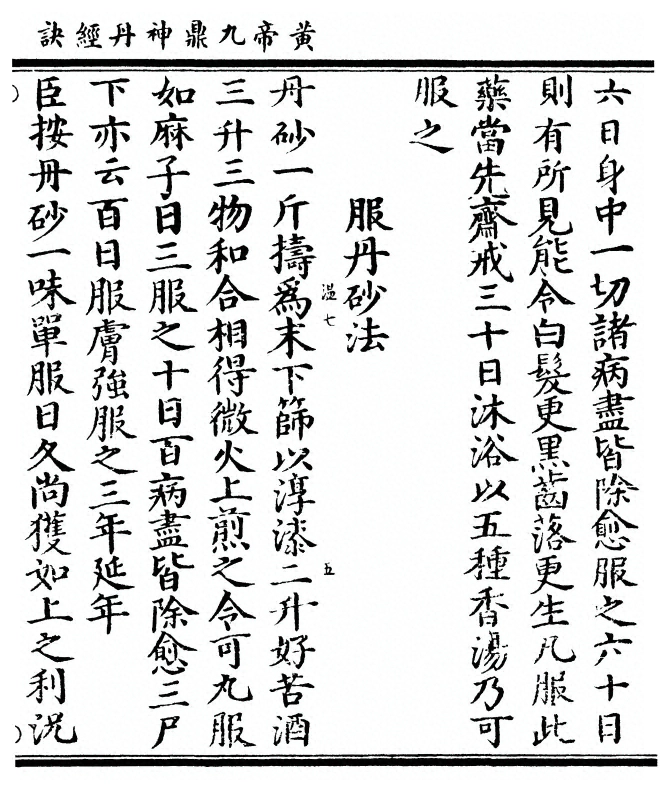 黃帝九鼎神丹經訣
六日身中一切諸病盡皆除愈服之六十日
則有所見能令白髮更黑齒落更生凡服此
藥當先齋戒三十日沐浴以五種香湯乃可
服之
服丹砂法
温七
五
丹砂一斤擣爲末下篩以淳漆二升好苦酒
三升三物和合相得微火上煎之令可丸服
如麻子日三服之十日百病盡皆除愈三尸
下亦云百日服膚強服之三年延年
臣按丹砂一味單服日久尚獲如上之利況